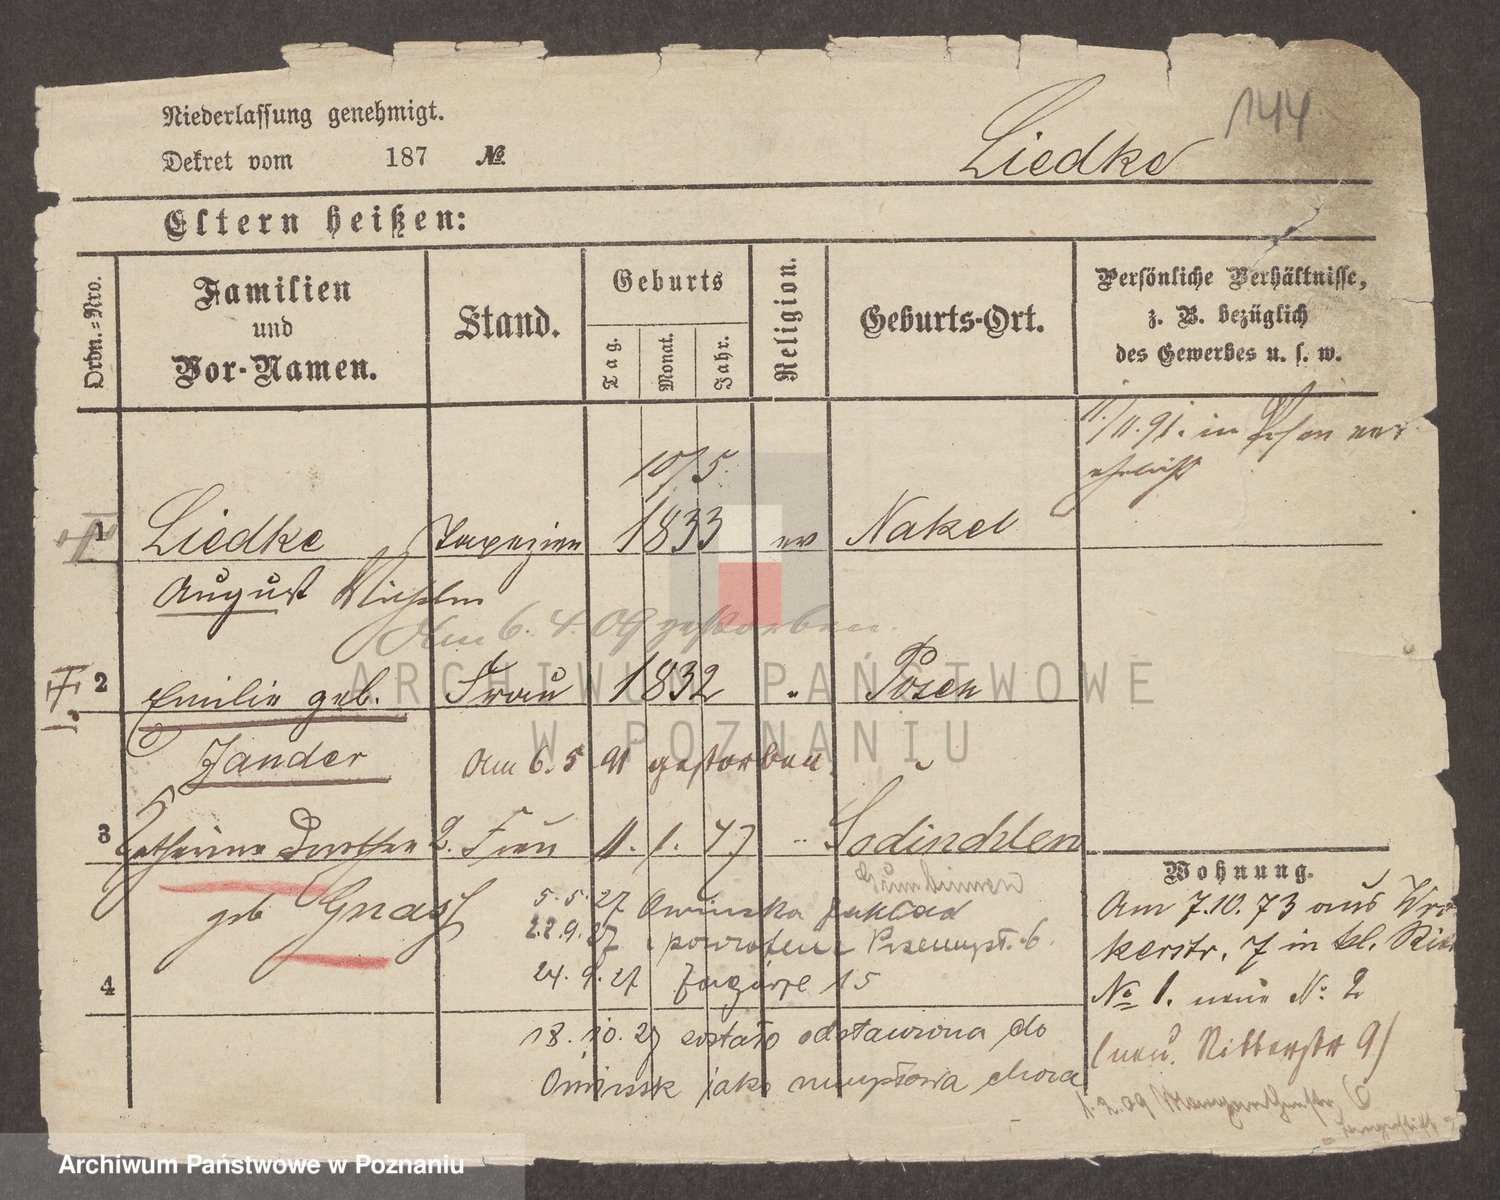 144
Niederlassung genehmigt.
Dekret vom 187 №
Liedke
Eltern heißen:
Ordn.=Nro.
Familien
und
Vor-Namen.
Stand.
Geburts
Tag.
Monat.
Jahr.
Religion.
Geburts-Ort.
Persönliche Verhältnisse,
z. B. bezüglich
des Gewerbes u. s. w.
11./11.91. in Posen ver
ehelicht
10/5.
1 Liedke Tapezier 1833 ev Nakel
August Wilhelm
Am 6. 4. 09 gestorben.
2 Emilie geb. Frau 1832 " Posen
Zander Am 6. 5 91 gestorben.
3 Catharine Dorothea 2. Frau 11. 1. 47 " Sodinehlen
Gumbinnen
geb Gnass
5.5.27 Owinska zakład
22.9.27 powrotem Przemysł. 6.
4
24. 9. 27 Zagórze 15
18. 10. 27 została odstawiona do
Owinsk jako umysłowa chora
Wohnung.
Am 7.10.73 aus
kerstr. 7 in kl.
№ 1. neue № 2
(neu. Ritterstr 9)
1.2.09
ARCHIWUM PAŃSTWOWE
W POZNANIU
Archiwum Państwowe w Poznaniu